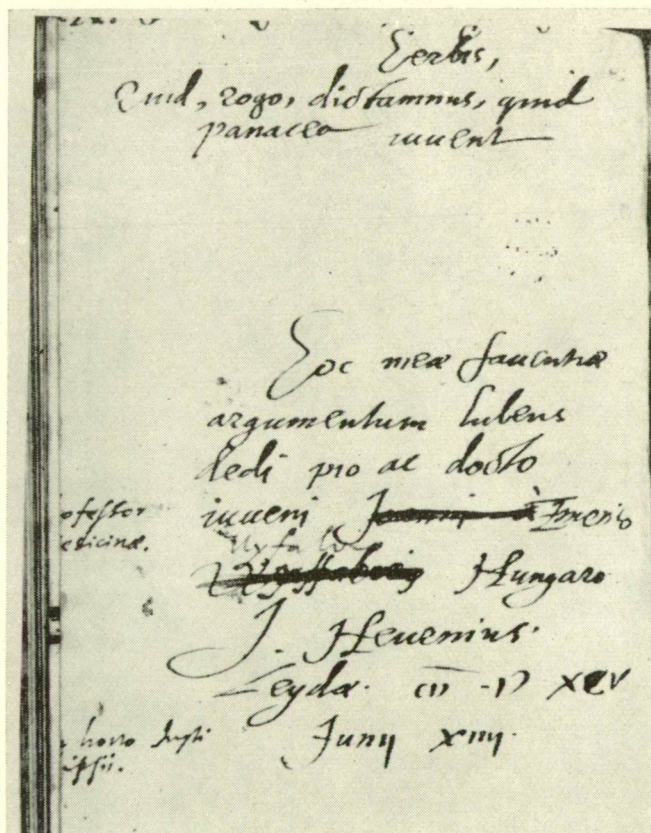 Herbis,
Quid, rogo, dictamnus, quid
panacea iuvent
Hoc meæ faventiæ
argumentum lubens
dedi pio ac docto
iuveni Joanni à
Hungaro
J. Heurnius.
Leydæ. XCV
Junij XIIIJ.
ofessor
edicinæ.
horto
ipsii.